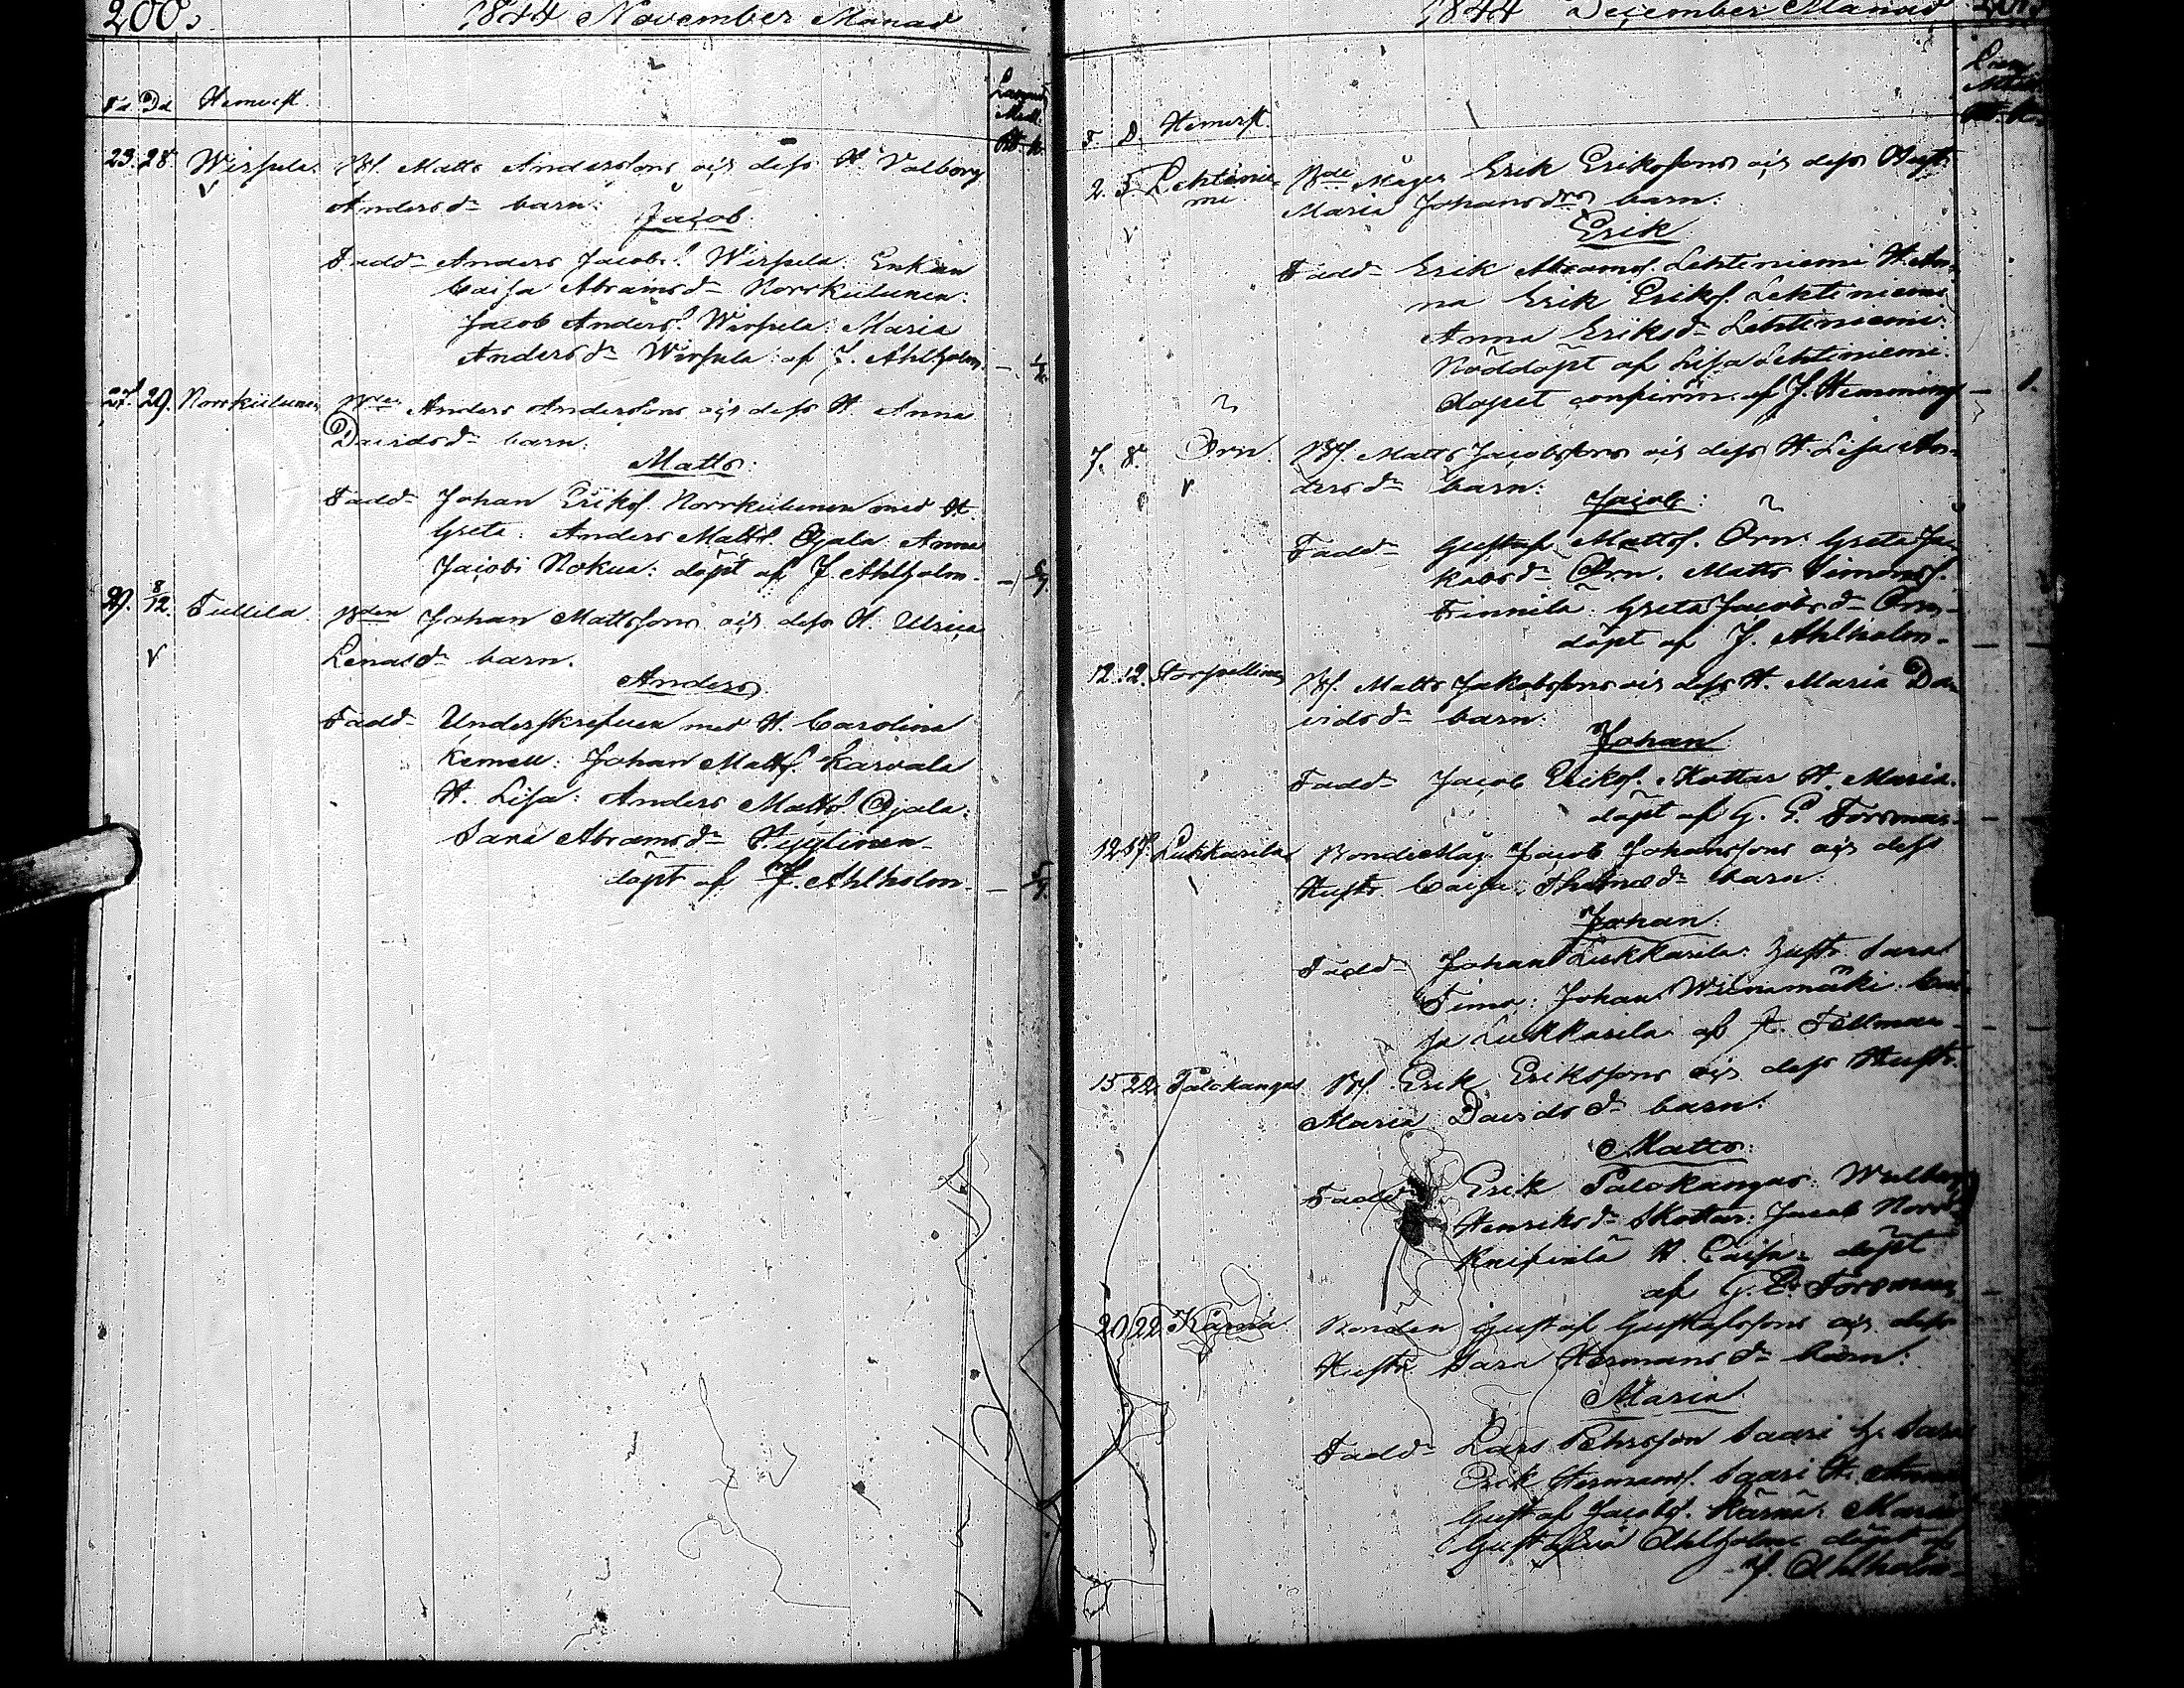 200.
1844 November Månad
Fd Dd Hemvist
23. 28. Wirpula. Bf. Matts Anderssons och dess H. Valborg
Andersdr barn:
Jacob
Fadd- Anders Jacobs: Wirpula: Enkan
Caisa Abramsdr Norrkiilunen:
Jacob Anders: Wirpula: Maria
Andersdr Wirpula: af J. Ahlholm.
27. 29. Norrkiilunen Bden Anders Anderssons och dess H. Anna
Davidsdr barn:
Matts:
Fadd- Johan Eriks. Norrkiilunen med H.
Greta: Anders Matts. Ojala: Anna
Jacobi Nokua: döpt af J. Ahlholm.
29. 8/12. Tullila. Bden Johan Mattssons och dess H. Ulrica
Lenasdr barn.
Anders
Fadd- Underskrefven med H. Carolina
Kemell: Johan Matts. Karvala
H. Lisa: Anders Matts. Ojala:
Sara Abramsdr
döpt af J. Ahlholm.
1844 December Månad
F. D. Hemvist.
2. 5. Lehtinie-
mi
Bde Mågen Erik Erikssons och dess Hust.
Maria Johansdr barn:
Erik
Fadd- Erik Abrams. Lehtiniemi H. An-
na Erik Eriks. Lehtiniemi
Anna Eriksdr Lehtiniemi:
Nöddöpt af Lisa Lehtiniemi.
dopet confirm. af J. Hemming 1.
7. 8. Örn. Bf. Matts Jacobssons och dess H. Lisa An-
dersdr barn:
Jacob:
Fadd- Gustaf Matts. Örn: Greta Ja-
kobsdr Örn. Matts Simons.
Finnilä: Greta Jacobsdr Örn-
döpt af J. Ahlholm-
12. 12. Bf. Matts Jakobssons och dess H. Maria Da-
vidsdr barn:
Johan
Fadd- Jacob Eriks. Skottar H. Maria.
döpt af G. E. Forsman.
12. 17. Lukkarila Bonde Måg. Jacob Johanssons och dess
Hustr. Caisa. Thomædr barn:
Johan:
Fadd- Johan Lukkarila: Hustr. Sara
Timo: Johan Wiinamäki. Cai-
sa Lukkarila af A. Fellman-
15 22. Palokangas Bf. Erik Erikssons och dess Hustr.
Maria Davidsdr barn:
Matts:
Fadd- Erik Palokangas. Wulborg
Henriksdr Skottar: Jacob Norr-
Knifsilä H. Caisa- döpt
af G. E. Forsman
20. 22. Kärnä. Bonden Gustaf Gustafssons och dess
Hustr. Sara Hermansdr barn:
Maria
Fadd- Lars Pehrsson Saari H. Sara
Erik Hermans. Saari H. Anna
Gustaf Jacobs. Kärnä. Maria
Gustafva Ahlholm döpt af
J. Ahlholm-